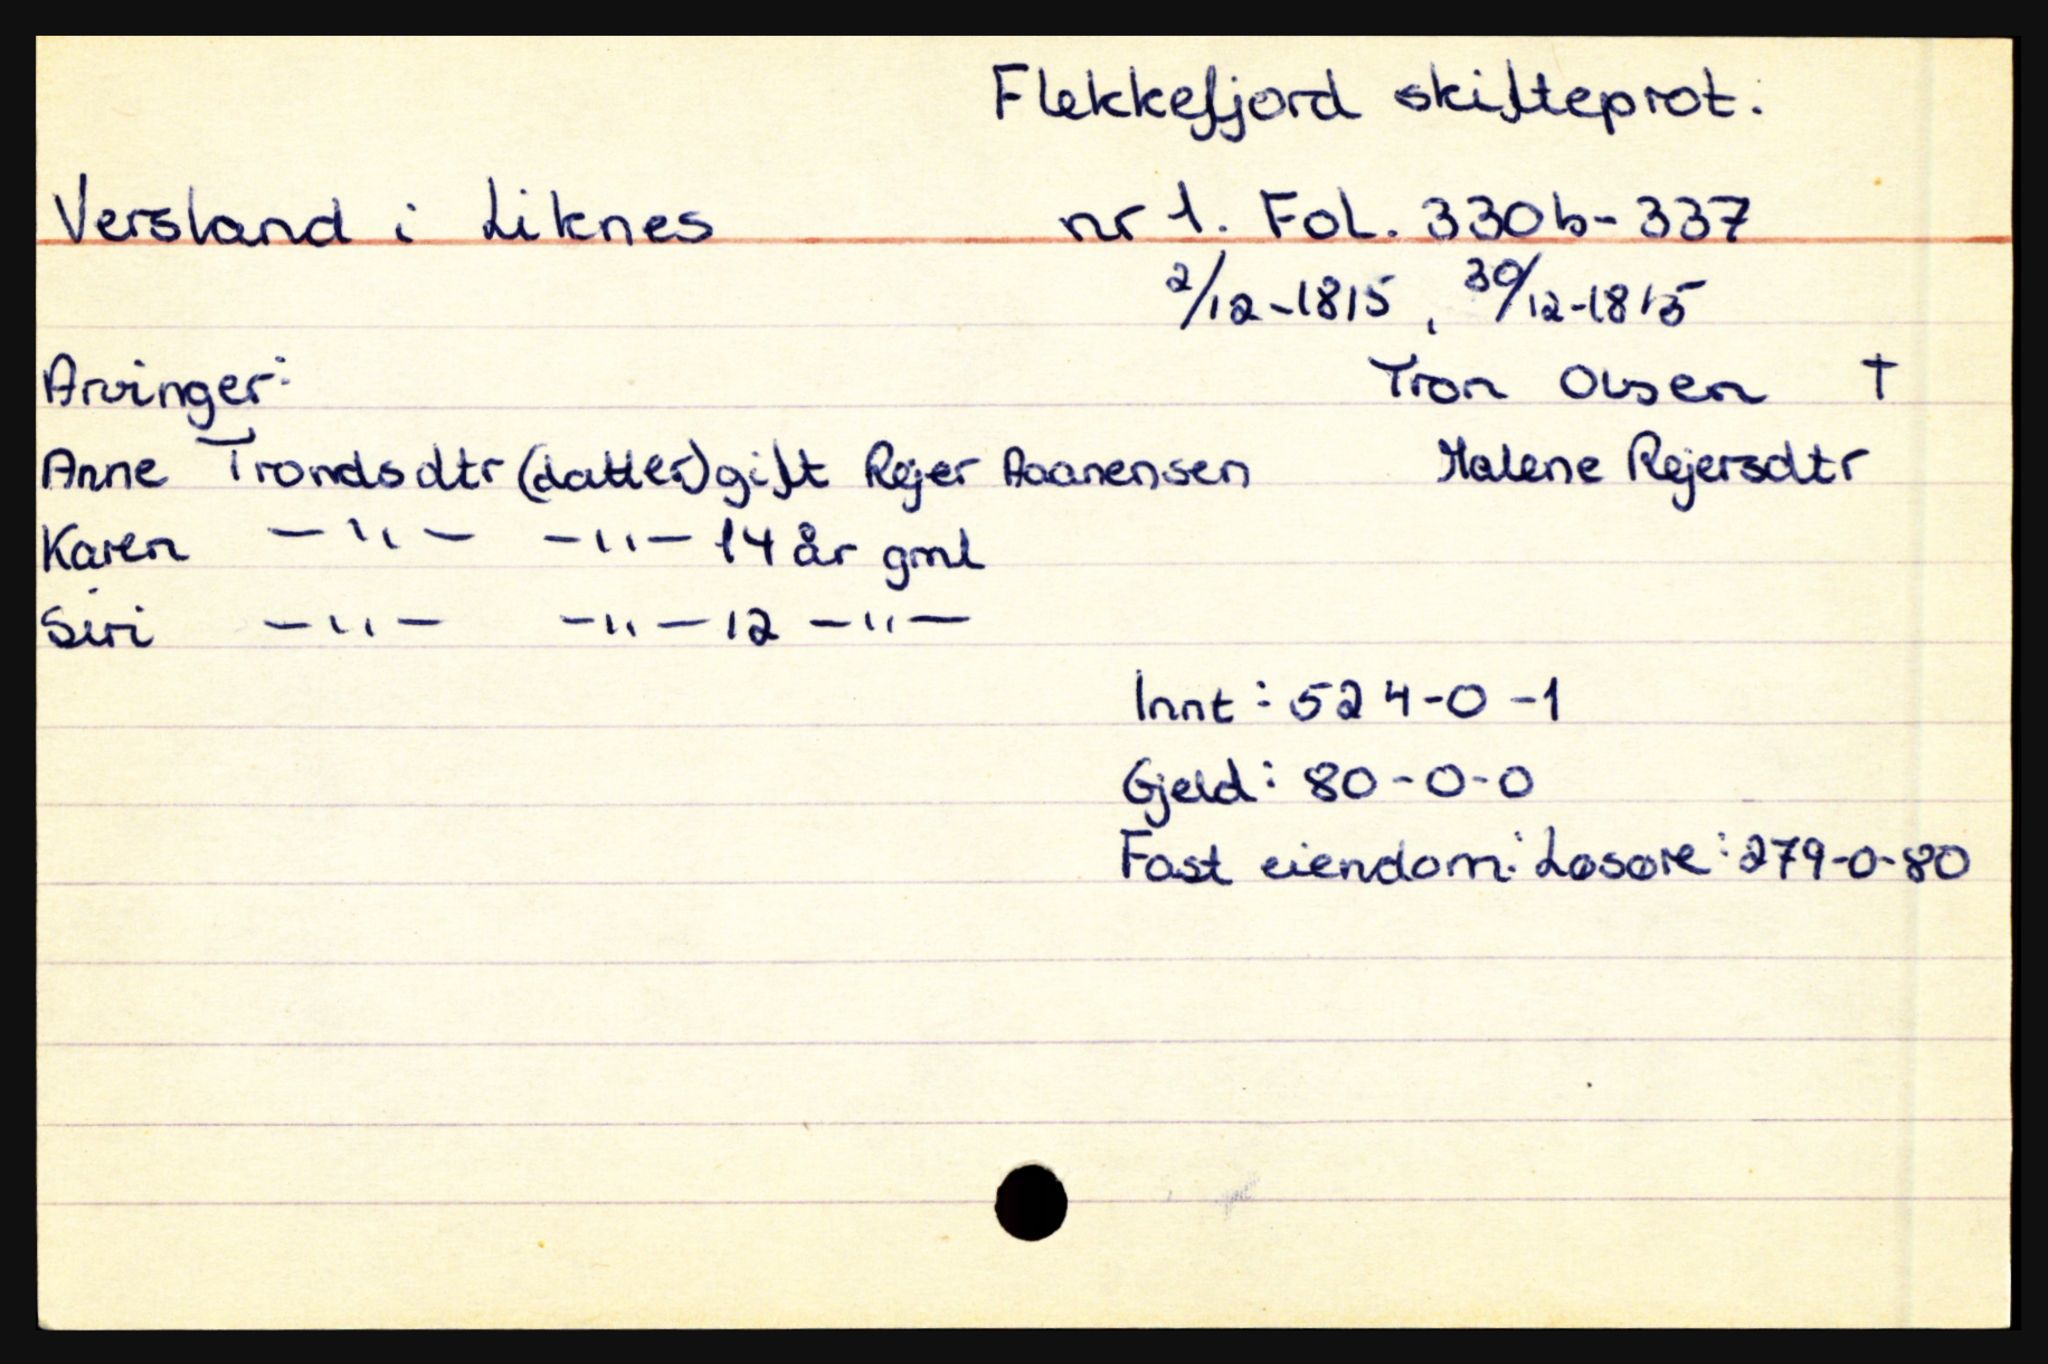 Flekkefjord skifteprot.
Versland i Liknes nr 1. Fol. 330b-337
2/12-1815, 30/12-1815
Arvinger: Tron Olsen †
Anne Trondsdtr (datter) gift Rejer Aaanensen Malene Rejersdtr
Karen -"- -"- 14 år gml
Siri -"- -"- 12 -"-
Innt: 524-0-1
Gjeld: 80-0-0
Fast eiendom: Løsøre: 279-0-80